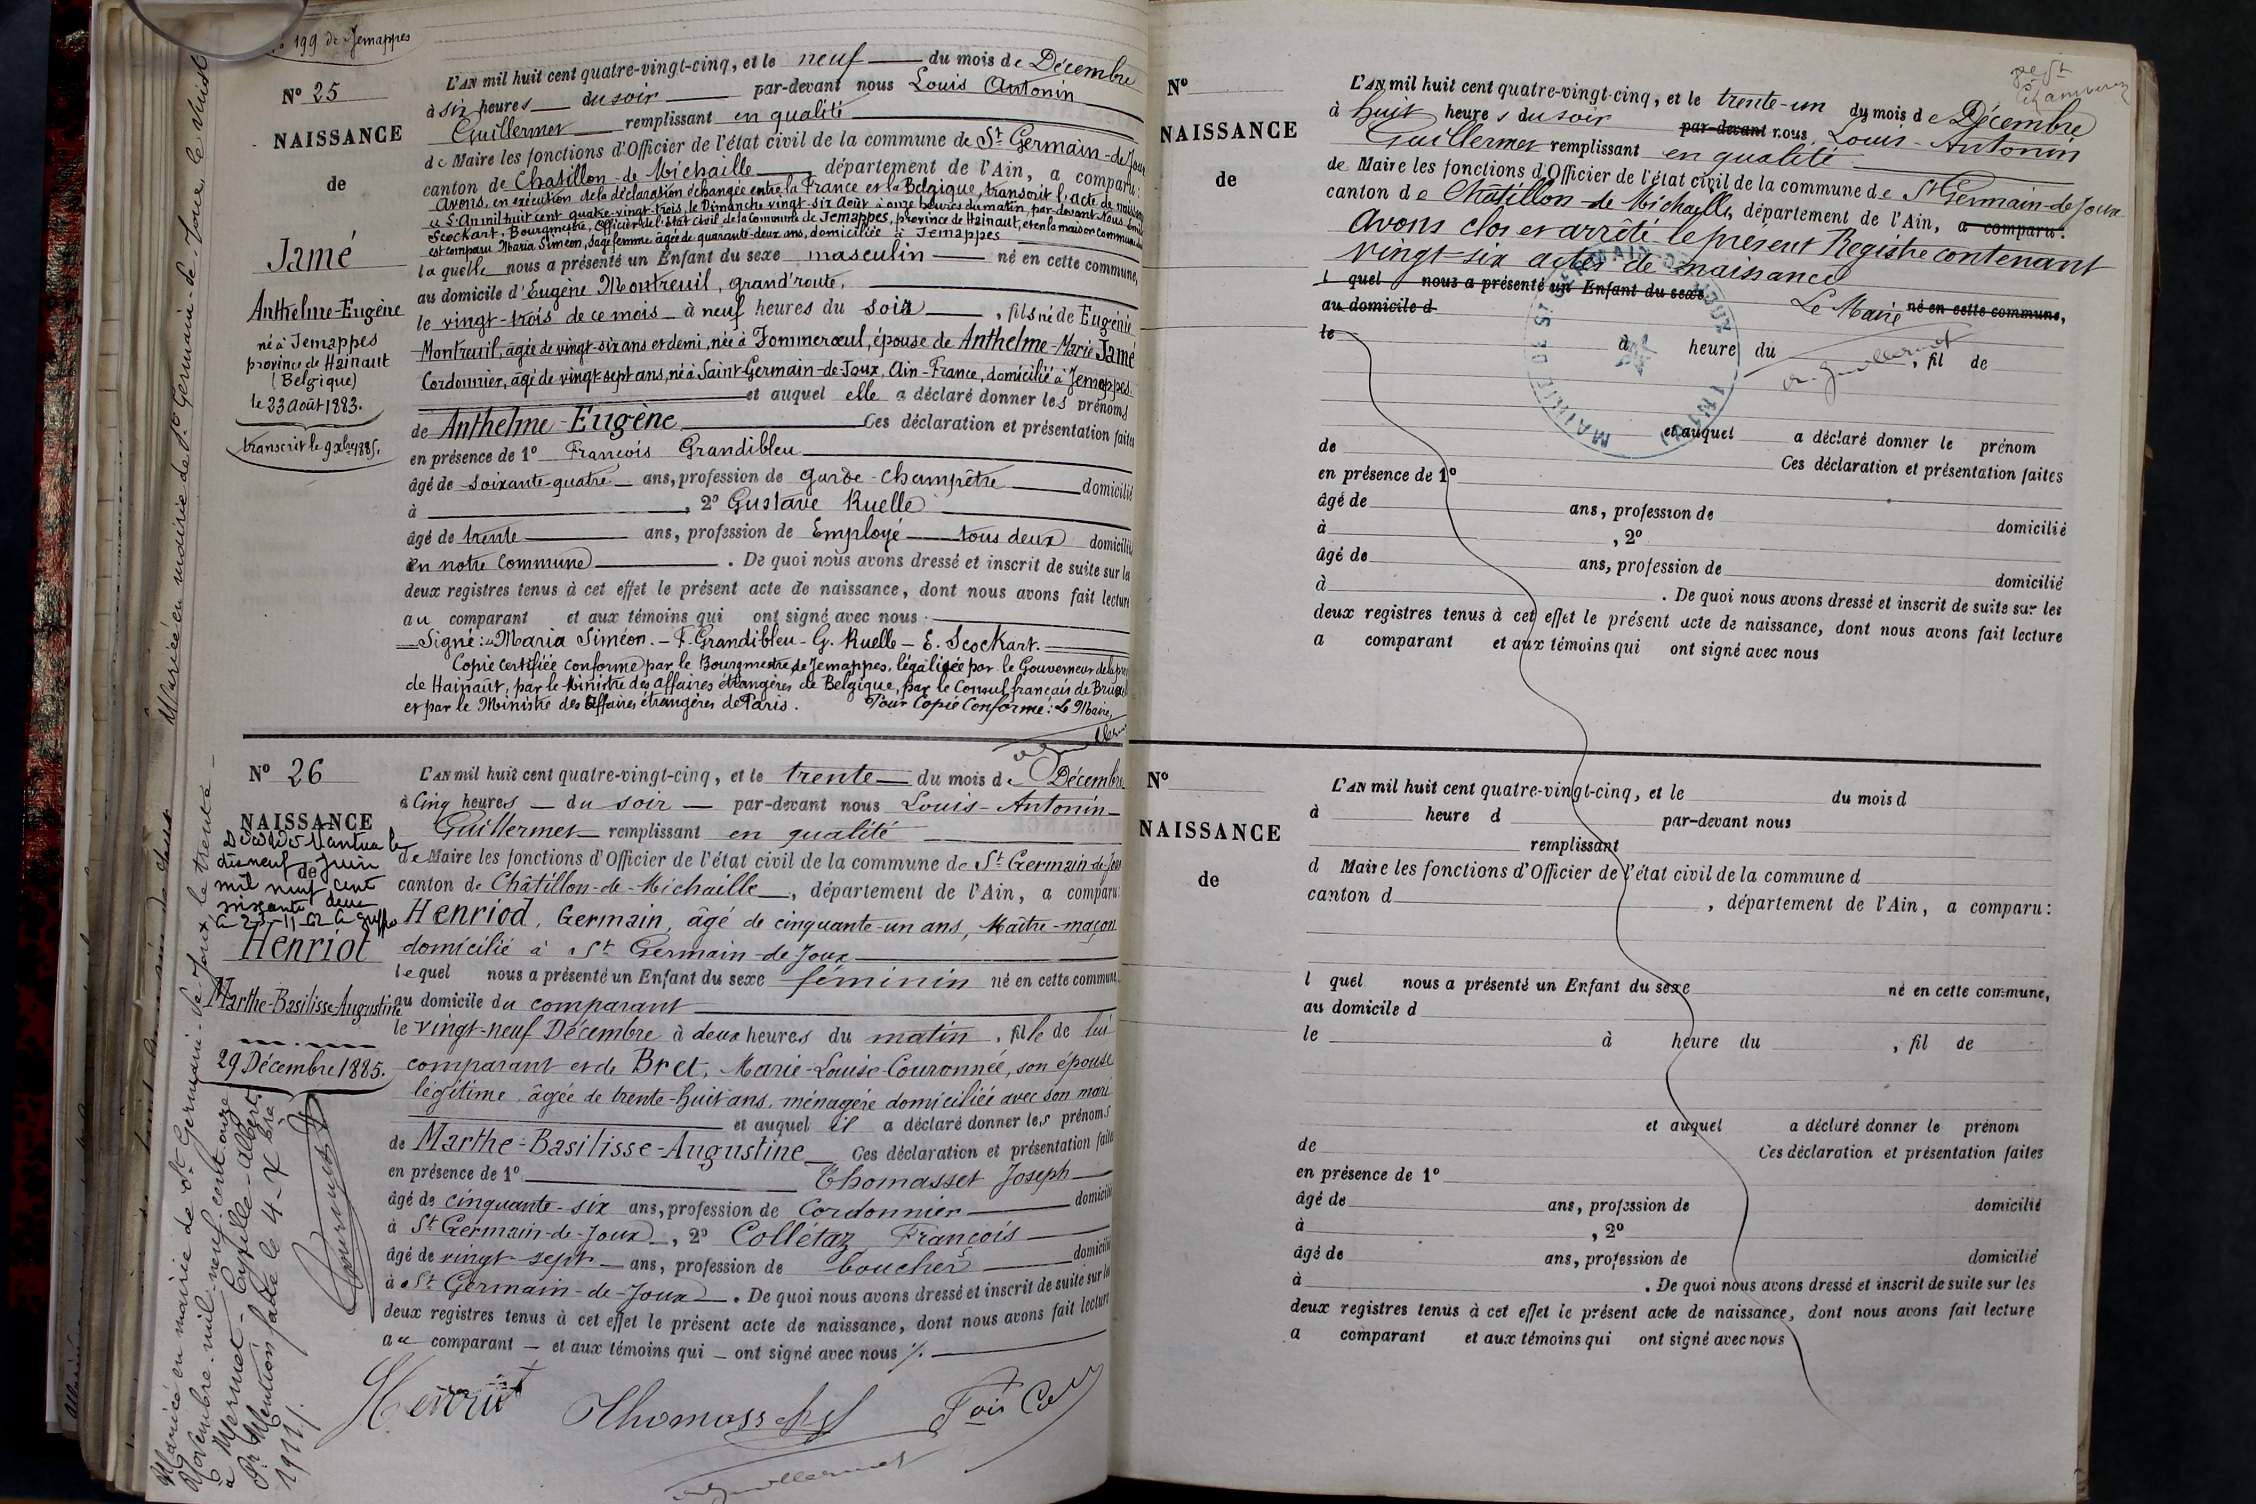 199 de Jemappes
N° 25
NAISSANCE
de
Jamé
Anthelme-Eugène
né à Jemappes
province de Hainaut
(Belgique)
le 23 août 1883.
transcrit le 9 xbre 1885.
L'AN mil huit cent quatre-vingt-cinq, et le neuf du mois de Décembre
à six heures du soir par-devant nous Louis Antonin
Guillermet remplissant en qualité
de Maire les fonctions d'Officier de l'état civil de la commune de St Germain-de-Joux
canton de Chatillon-de-Michaille, département de l'Ain, a comparu:
Avons, en exécution de la déclaration échangée entre la France et la Belgique, transcrit l'acte de naissance
L'An mil huit cent quatre-vingt-trois, le Dimanche vingt-six Août à onze heures du matin, par-devant Nous
Scockart, Bourgmestre, Officier de l'état civil de la Commune de Jemappes, province de Hainaut, et en la maison commune
est comparu Maria Siméon, Sage femme âgée de quarante-deux ans, domiciliée à Jemappes
laquelle nous a présenté un Enfant du sexe masculin né en cette commune,
au domicile d'Eugène Montreuil, grand'route,
le vingt-trois de ce mois à neuf heures du soir, fils né de Eugénie
Montreuil, âgée de vingt-six ans et demi, née à Pommeroeul, épouse de Anthelme-Marie Jamé
Cordonnier, âgé de vingt-sept ans, né à Saint-Germain-de-Joux, Ain-France, domicilié à Jemappes
et auquel elle a déclaré donner les prénoms
de Anthelme-Eugène Ces déclaration et présentation faites
en présence de 1° François Grandibleu
âgé de soixante-quatre ans, profession de garde-champêtre domicilié
à , 2° Gustave Ruelle
âgé de trente ans, profession de Employé tous deux domicilié
en notre Commune. De quoi nous avons dressé et inscrit de suite sur les
deux registres tenus à cet effet le présent acte de naissance, dont nous avons fait lecture
au comparant et aux témoins qui ont signé avec nous.
Signé: Maria Siméon. - F. Grandibleu - G. Ruelle - E. Scockart.
Copie certifiée conforme par le Bourgmestre de Jemappes, légalisée par le Gouverneur de la
de Hainaut, par le Ministre des affaires étrangères de Belgique, par le Consul français de
et par le Ministre des Affaires étrangères de Paris. Pour Copie Conforme: Le Maire,
N° 26
NAISSANCE
de
Henriot
Marthe-Basilisse-Augustine
29 Décembre 1885.
L'AN mil huit cent quatre-vingt-cinq, et le trente du mois de Décembre
à Cinq heures du soir par-devant nous Louis-Antonin
Guillermet remplissant en qualité
de Maire les fonctions d'Officier de l'état civil de la commune de St Germain-de-Joux
canton de Châtillon-de-Michaille, département de l'Ain, a comparu:
Henriod, Germain, âgé de cinquante-un ans, Maître-maçon
domicilié à St Germain-de-Joux
lequel nous a présenté un Enfant du sexe féminin né en cette commune
au domicile du comparant
le vingt-neuf Décembre à deux heures du matin, fille de lui
comparant et de Bret, Marie-Louise-Couronnée, son épouse
légitime, âgée de trente-huit ans, ménagère domiciliée avec son mari
et auquel il a déclaré donner les prénoms
de Marthe-Basilisse-Augustine Ces déclaration et présentation faites
en présence de 1° Thomasset Joseph
âgé de cinquante-six ans, profession de Cordonnier domicilié
à St Germain-de-Joux, 2° Collétaz François
âgé de vingt-sept ans, profession de boucher domicilié
à St Germain-de-Joux. De quoi nous avons dressé et inscrit de suite sur les
deux registres tenus à cet effet le présent acte de naissance, dont nous avons fait lecture
au comparant et aux témoins qui ont signé avec nous
Mariée en mairie de St Germain-de-Joux, le trente
Novembre mil neuf cent onze
à Mermet-
Pr Mention faite le 4 Xbre
1911.
N°
NAISSANCE
de
L'AN mil huit cent quatre-vingt-cinq, et le trente-un du mois de Décembre
à huit heures du soir par-devant nous Louis-Antonin
Guillermet remplissant en qualité
de Maire les fonctions d'Officier de l'état civil de la commune de St Germain-de-Joux
canton de Châtillon-de-Michaille, département de l'Ain, a comparu:
avons clos et arrêté le présent Registre contenant
vingt-six actes de naissance
l quel nous a présenté un Enfant du sexe né en cette commune,
Le Maire
au domicile d
le à heure du , fil de
et auquel a déclaré donner le prénom
de Ces déclaration et présentation faites
en présence de 1°
âgé de ans, profession de domicilié
à , 2°
âgé de ans, profession de domicilié
à . De quoi nous avons dressé et inscrit de suite sur les
deux registres tenus à cet effet le présent acte de naissance, dont nous avons fait lecture
a comparant et aux témoins qui ont signé avec nous
N°
NAISSANCE
de
L'AN mil huit cent quatre-vingt-cinq, et le du mois d
à heure d par-devant nous
remplissant
d Maire les fonctions d'Officier de l'état civil de la commune d
canton d , département de l'Ain, a comparu:
l quel nous a présenté un Enfant du sexe né en cette commune,
au domicile d
le à heure du , fil de
et auquel a déclaré donner le prénom
de Ces déclaration et présentation faites
en présence de 1°
âgé de ans, profession de domicilié
à , 2°
âgé de ans, profession de domicilié
à . De quoi nous avons dressé et inscrit de suite sur les
deux registres tenus à cet effet le présent acte de naissance, dont nous avons fait lecture
a comparant et aux témoins qui ont signé avec nous